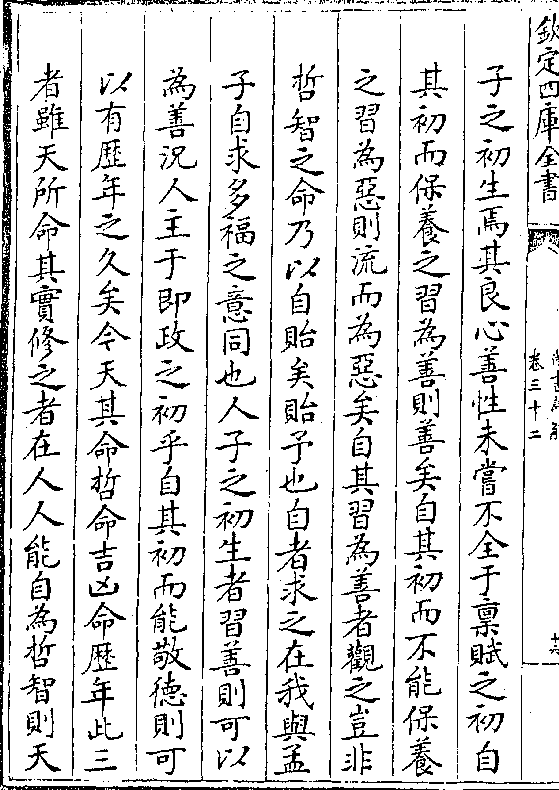 欽定四庫全書
卷三十二
子之初生焉其良心善性未嘗不全于稟賦之初自
其初而保養之習為善則善矣自其初而不能保養
之習為惡則流而為惡矣自其習為善者觀之豈非
哲智之命乃以自貽矣貽予也自者求之在我與孟
子自求多福之意同也人子之初生者習善則可以
為善況人主于即政之初乎自其初而能敬德則可
以有歷年之久矣今天其命哲命吉凶命歷年此三
者雖天所命其實修之者在人人能自為哲智則天